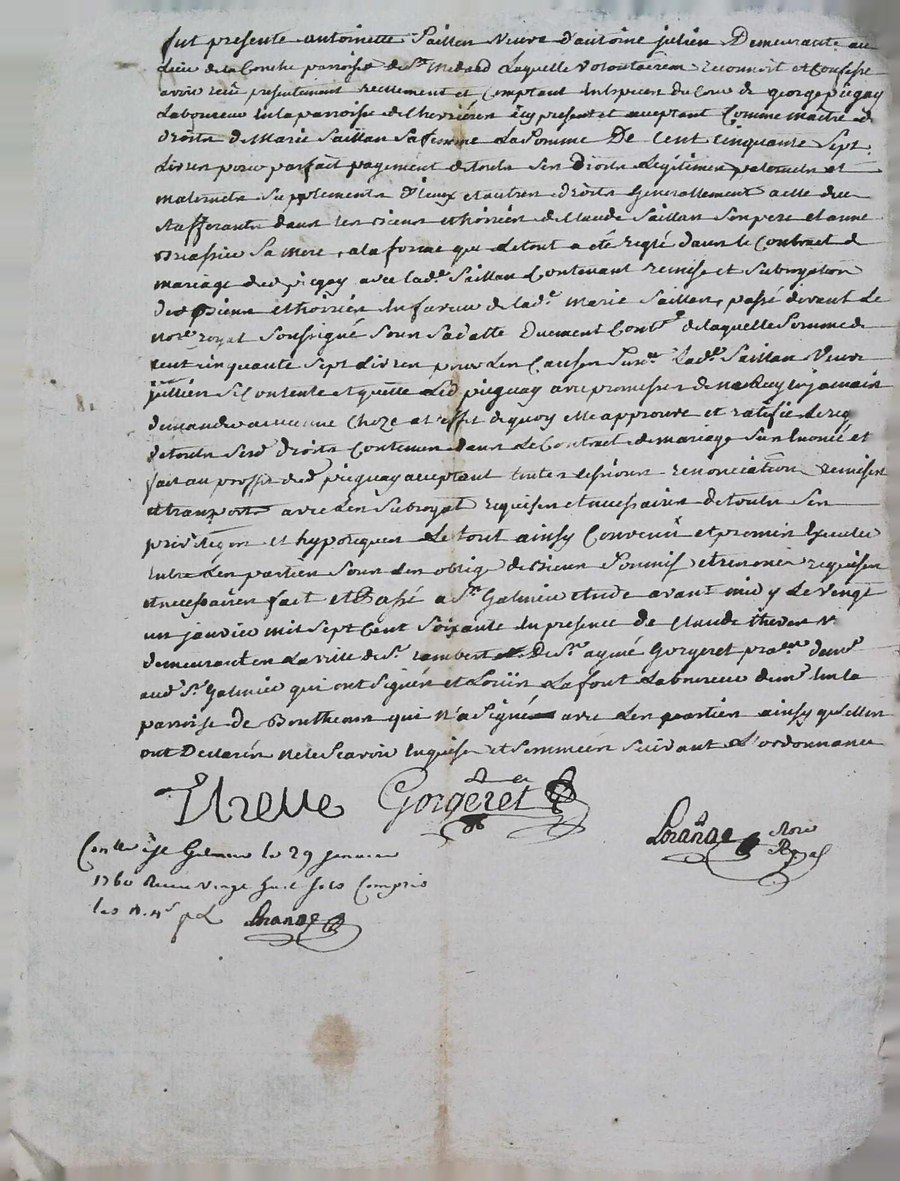 fut presente antoinette Saillan Veuve d'antoine julien Demeurante au
Lieu de la Conche parroisse de St. Medard Laquelle Volontairem reconnoit et Confesse
avoir reçu presentement reellement et Comptant du Cour de george piegay
Laboureur En la parroisse de Chevrieres icy present et acceptant Comme maitre des
droits de Marie Saillan Sa femme La Somme De Cent Cinquante Sept
Livres pour parfait payement de touts Ses Droits Legitimes paternels et
maternels Supplements d'iceux et autres droits Generallement a elle
afferants dans Les biens et hoiries de Claude Saillan Son pere et anne
Sa Mere, a la forme que Le tout a eté reglé dans le Contract de
mariage dud piegay avec lad. Saillan Contenant remise et Subrogation
desd biens et hoiries En faveur de lad. Marie Saillan, passé devant Le
Nore. royal Soussigné Sous Sa datte Duement Contlé de laquelle Somme de
Cent Cinquante Sept Livres pour Les Causes Lade Saillan Veuve
jullien Se Contente et quitte Led pieguay avec promesse de ne Luy En jamais
demander aucunne Choze a l'effet de quoy elle approuve et ratifie
de touts Sesd droits Contenue dans Le Contract de mariage Sus Enoncé et
fait au proffit dud pieguay acceptant toutes renonciation remises
et transports avec Les Subrogat requises et necessaires de touts Ses
privileges et hypoteques Le tout ainsy Convenû et promis Executer
Entre Les parties Sous Les oblig de biens Soumis et renonc requises
et necessaires fait et Passé a St. Galmier Etude avant midy Le Vengt
un janvier mil Sept Cent Soixante En presence de Claude thevenet
demeurant en La ville de St. rambert et De Sr. aymé Gorgeret demt
aud St. Galmier qui ont Signés et Loüis Lafont Laboureur demt En la
parroise de Boutheon qui n'a Signé avec Les parties ainsy qu'elles
ont Declarés ne le Scavoir Enquises et Sommées Suivant L'ordonnance
Gorgeret
Lorange Nore Royal
Conllé a St Galmier le 29 janvier
1760 Receu Vingt huit sols Compris
les
Lorange